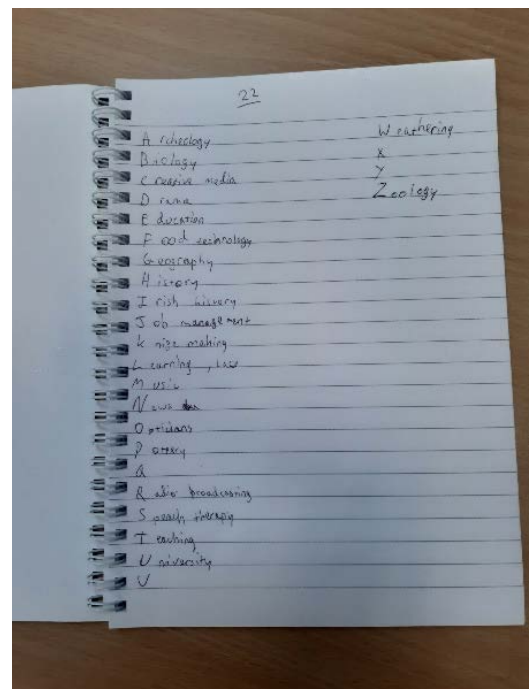 22
Archeology
Biology
Creative media
Drama
Education
Food technology
Geography
History
Irish history
Job management
Knife making
Learning, law
Music
News
Opticians
Potery
Q
Radio broadcasting
Speach therapy
Teaching
University
V
Weathering
X
Y
Zoology